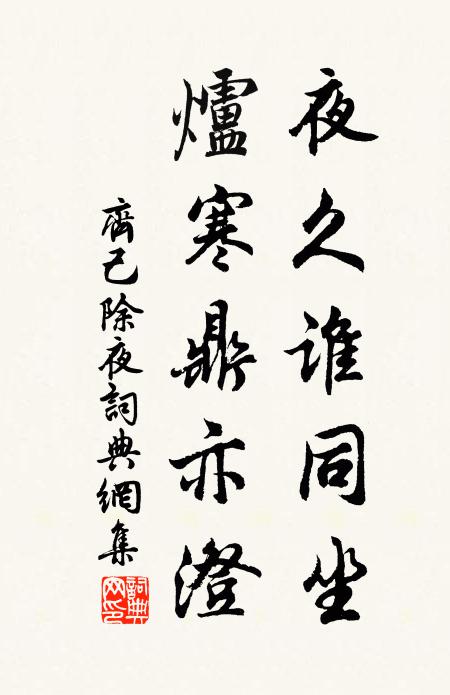 夜久誰同坐
爐寒鼎亦澄
齊己除夜詞典網集
詞典網印